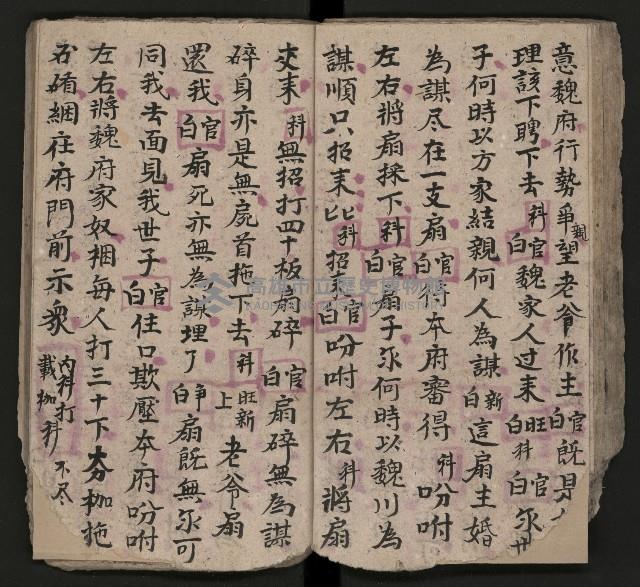 意魏府行勢爭親望老爺作主官白既是
理該下聘下去科官白魏家人过来旺白科官白尔廿
子何時以方家結親何人為謀新白這扇主婚
為謀尽在一支扇官白待本府審得科吩咐
左右將扇採下科官白扇子尔何時以魏川為
謀順只招来比比科招来官白吩咐左右科將扇
夾来科無招打四十板扇碎官白扇碎無為謀
碎身亦是無屍首拖下去科旺新上老爷扇
還我官白扇死亦無為謀埋了爭白扇既無尔可
同我去面見我世子官白住口欺壓本府吩咐
左右將魏府家奴捆每人打三十下大枷拖
出綑在府門前示衆內科打載枷科不尽
高雄市立歷史博物館
KAOHSIUNG MUSEUM OF HISTORY